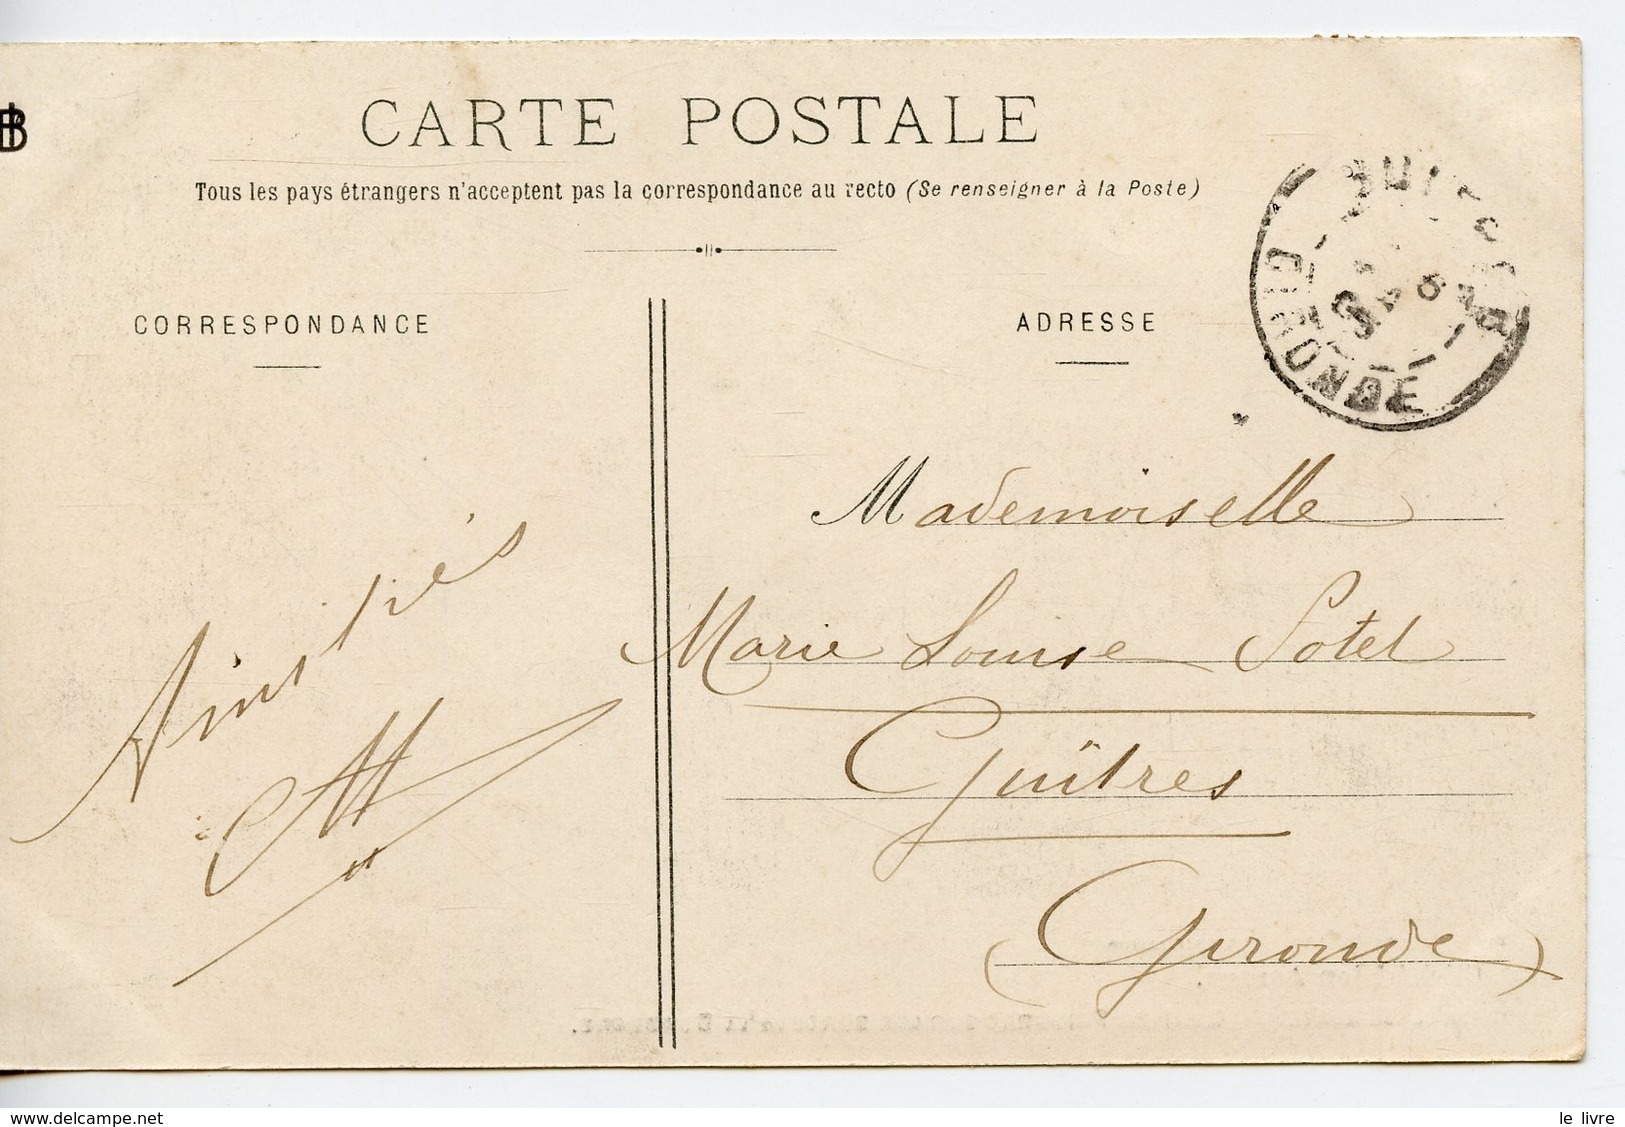 CARTE POSTALE
Tous les pays étrangers n'acceptent pas la correspondance au recto (Se renseigner à la Poste)
CORRESPONDANCE
ADRESSE
GUITRES
GIRONDE
Amitiés
Mademoiselle
Marie Louise Sotel
Guîtres
(Gironde)
www.delcampe.net
le livre